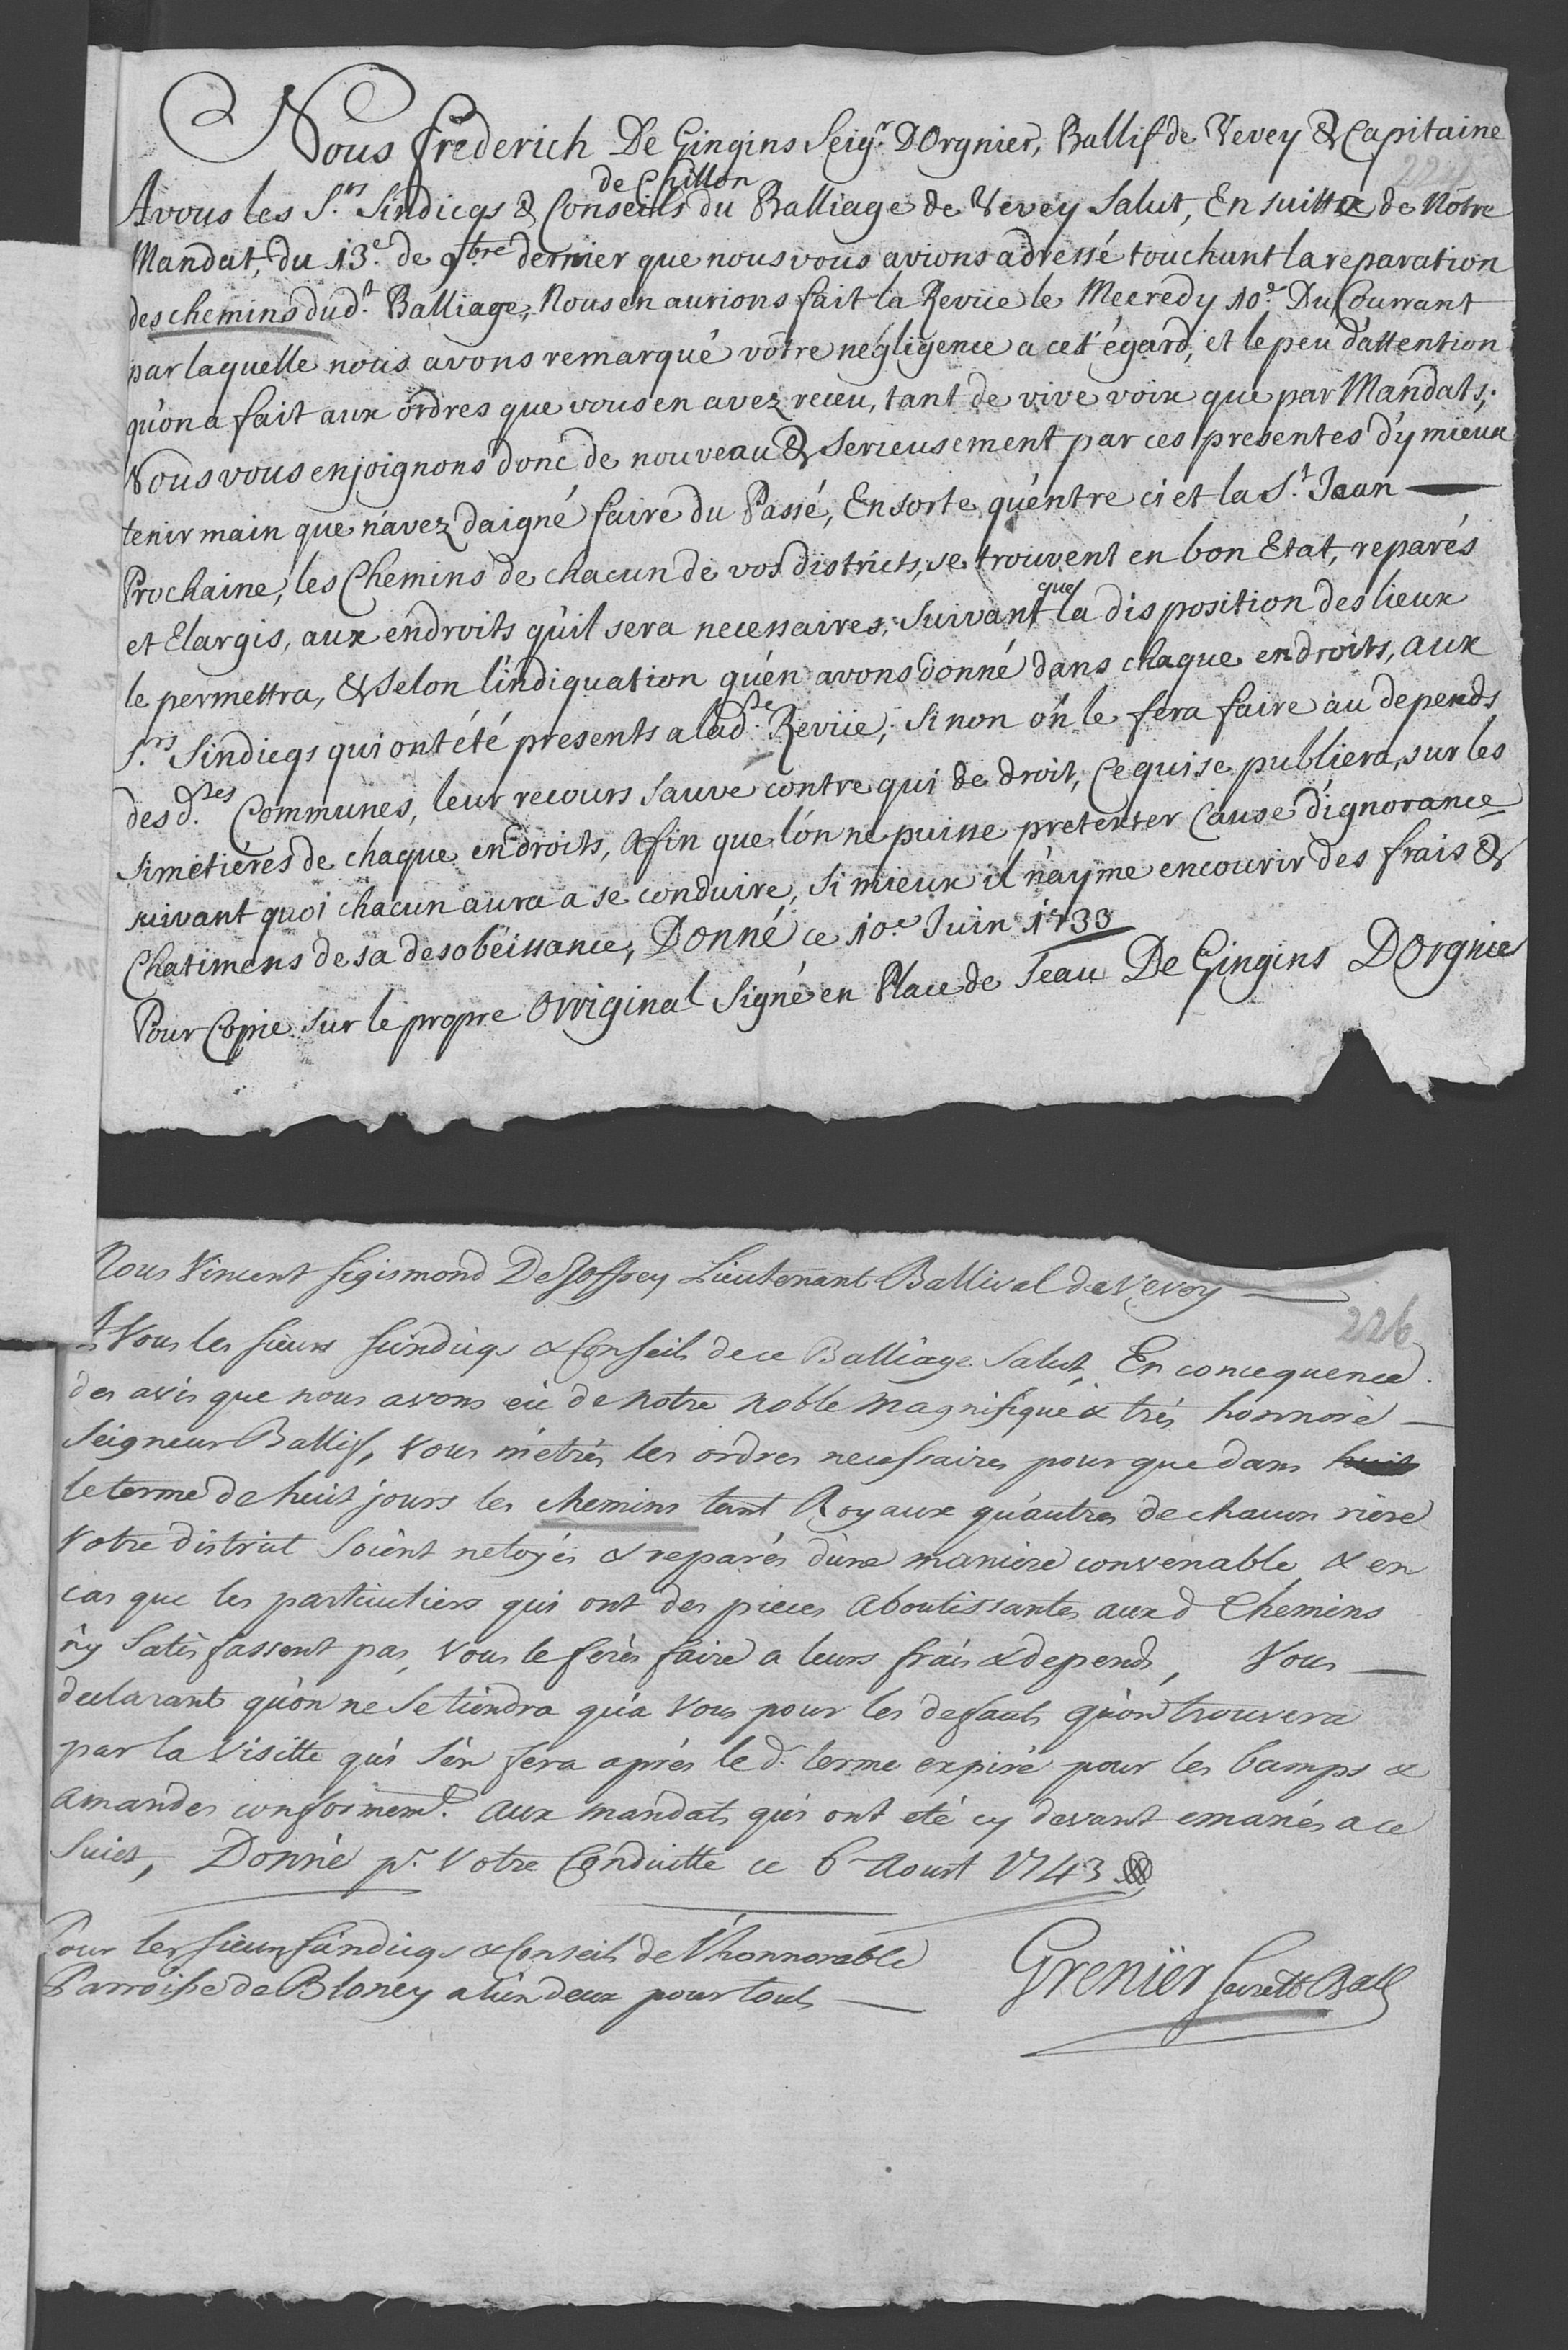 Nous frederich De Gingins Seig.r D'Orgnier, Ballif de Vevey & Capitaine
de Chillon
A vous les S.rs Sindicqs & Conseils du Balliage de Vevey Salut, En suitte de Nôtre
Mandat, du 13.e de 9bre dernier que nous vous avions adressé touchant la reparation
des chemins dud.t Balliage, Nous en aurions fait la Reviie le Mecredy 10.e Du Courrant
par laquelle nous avons remarqué vôtre negligence a cet égard, et le peu d'attention
qu'on a fait aux ordres que vous en avez receu, tant de vive voix que par Mandats,
Nous vous enjoignons donc de nouveau & serieusement par ces presentes d'y mieux
tenir main que n'avez daigné faire du Passé, En sorte qu'entre ci et la S.t Jean
Prochaine, les Chemins de chacun de vos districts, se trouvent en bon Etat, reparés
et Elargis, aux endroits qu'il sera necessaires, suivant que la disposition des lieux
le permettra, & selon l'indiquation qu'en avons donné dans chaque endroits, aux
S.rs Sindicqs qui ont été presents a lad.te Reviie, Sinon on le fera faire au depends
des d.tes Communes, leur recours sauvé contre qui de droit, Ce qui se publiera, sur les
Simetiéres de chaque endroits, Afin que l'on ne puisse pretexter Cause d'ignorance
suivant quoi chacun aura a se conduire, si mieux il n'ayme encourir des frais &
Chatimens de sa desobeissance, Donné ce 10.e Juin 1733
Pour Copie sur le propre Original Signé en Place de Seau De Gingins D'Orgnier
226
Nous Vincent Sigismond De Joffrey Lieutenant Ballival de Vevey
A Vous les sieurs sindicqs & Conseils de ce Balliage Salut, En concequence
des avis que nous avons eü de notre noble magnifique & trés honnoré
Seigneur Ballif, Vous métrés les ordres necessaires pour que dans huit
le terme de huit jours les chemins tant Royaux qu'autres de chacun riere
Votre district soient netoyés & reparés d'une maniere convenable & en
cas que les particuliers qui ont des pieces aboutissantes aux d Chemins
n'y satisfassent pas, Vous le ferés faire a leurs frais & depends, Vous
declarant qu'on ne se tiendra qu'a Vous pour les defauts qu'on trouvera
par la Visitte qui s'en fera aprés le d. terme expiré pour les bamps &
amandes conformem.t aux mandats qui ont eté cy devant emanés a ce
Sujet, Donné p.r Votre Conduitte ce 6 Aoust 1743
Pour les sieurs sindicqs & Conseils de l'honnorable
Parroisse de Bloney a lun deux pour touts
Grenier Secrett Ball